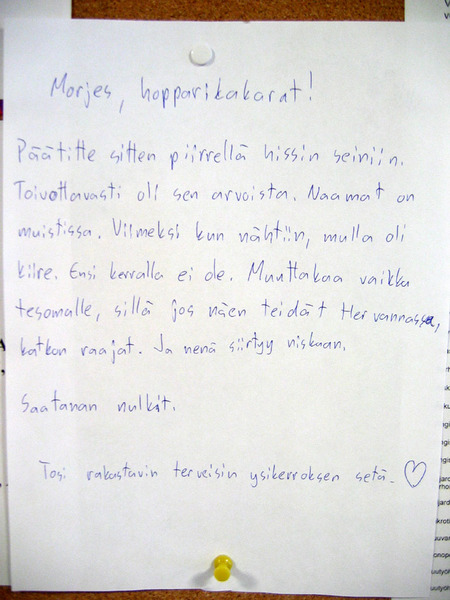 Morjes, hopparikakarat!
Päätitte sitten piirrellä hissin seiniin.
Toivottavasti oli sen arvoista. Naamat on
muistissa. Viimeksi kun nähtiin, mulla oli
kiire. Ensi kerralla ei ole. Muuttakaa vaikka
tesomalle, sillä jos näen teidät Hervannassa,
katkon raajat. Ja nenä siirtyy niskaan.
Saatanan nulkit.
Tosi rakastavin terveisin ysikerroksen setä. ♡